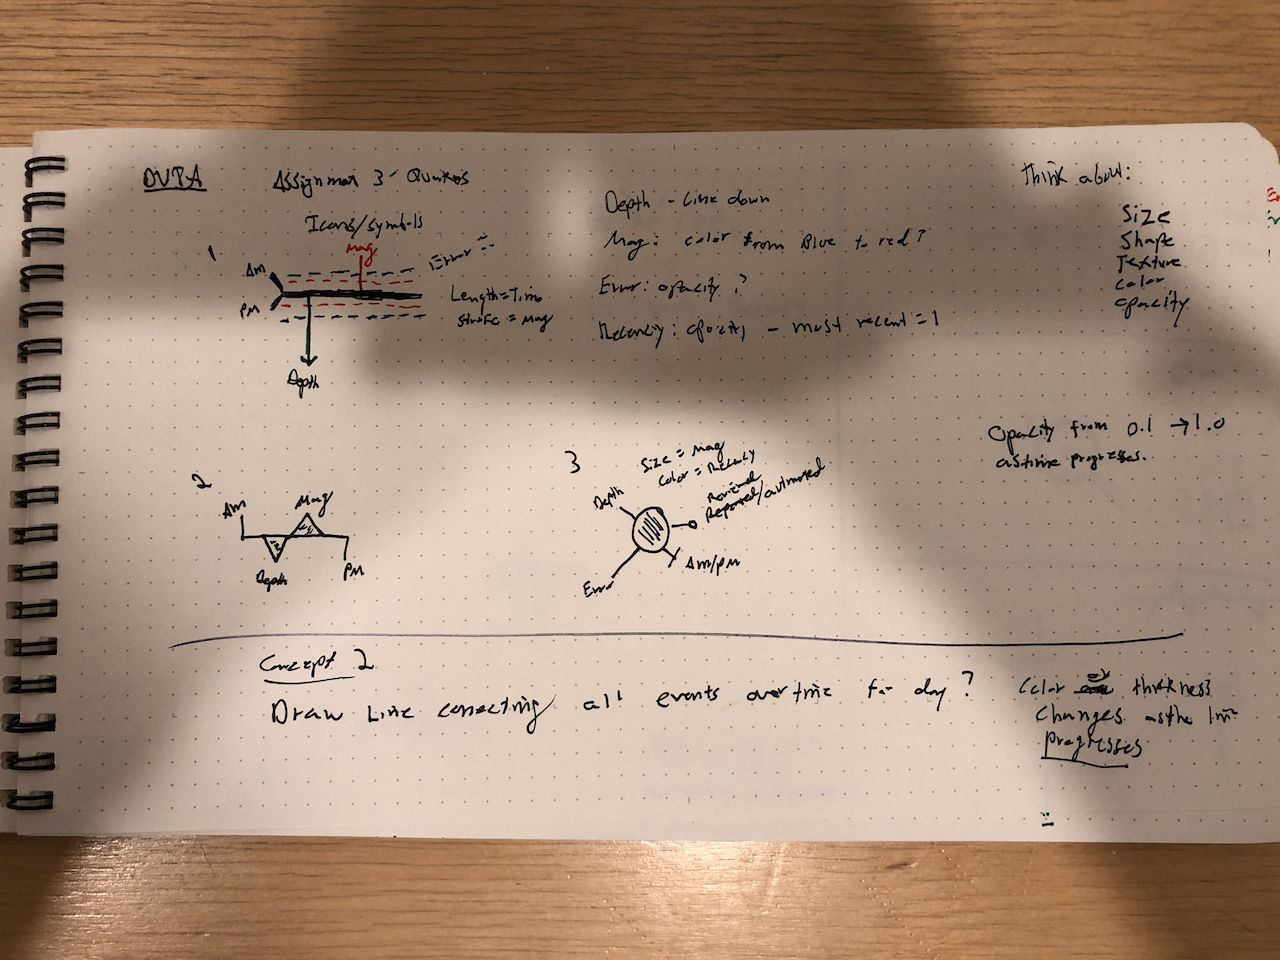 DVIA
Assignment 3 - Quakes
Icons/symbols
1
Mag
Error
Am
PM
Length = Time
Stroke = Mag
Depth
Depth - Line down
Mag: color from Blue to red?
Error: opacity?
Recency: opacity - most recent = 1
Think about:
Size
Shape
Texture
Color
opacity
Opacity from 0.1 → 1.0
as time progresses.
2
Am
Mag
Depth
PM
3
Size = Mag
Color = Recency
Depth
Reviewed
Reported/automated
Am/PM
Error
Concept 2
Draw Line connecting all events over time for day?
Color thickness
changes as the line
progresses